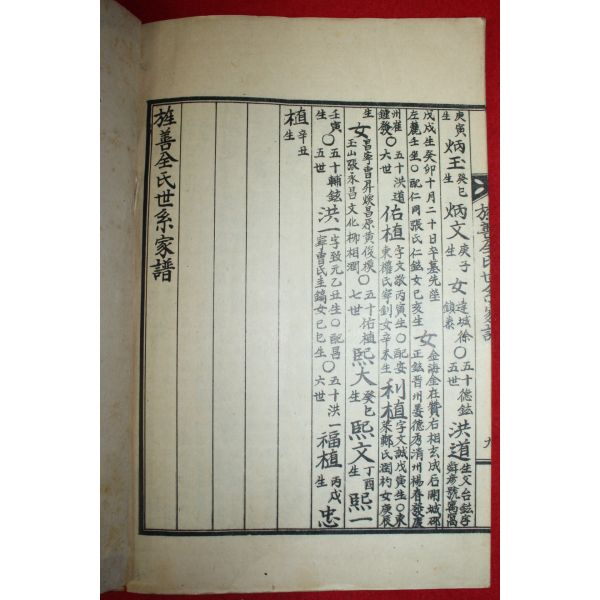 庚寅生 炳玉 癸巳生 炳文 庚子生 女 達城徐鎮泰 〇 五十德鉉 五世 洪道 生父台鉉字
戊戌生癸卯十月二十日卒墓先塋左麓壬坐〇配仁同張氏仁鉉女己亥生 女 金海金在贊右相玄成石開城 正鉉晋州姜德秀清州楊春發慶
州崔鍾發 〇 五十洪道 六世 佑植 字文敬丙寅生〇配安東權氏寧釗女辛未生 利植 字文誠戊寅生〇東萊鄭氏 女庚辰
生 女 昌寧曺昇煥昌原黃俊模玉山張永昌文化柳相潤 〇 五十佑植 七世 熙大 癸巳生 熙文 丁酉生 熙一
壬寅生 〇 五十輔鉉 五世 洪一 字致元乙丑生〇配昌寧曺氏圭鎬女己巳生 〇 五十洪一 六世 福植 丙戌生 忠
植 辛丑生
旌善全氏世系家譜
旌善全氏世系家譜 九